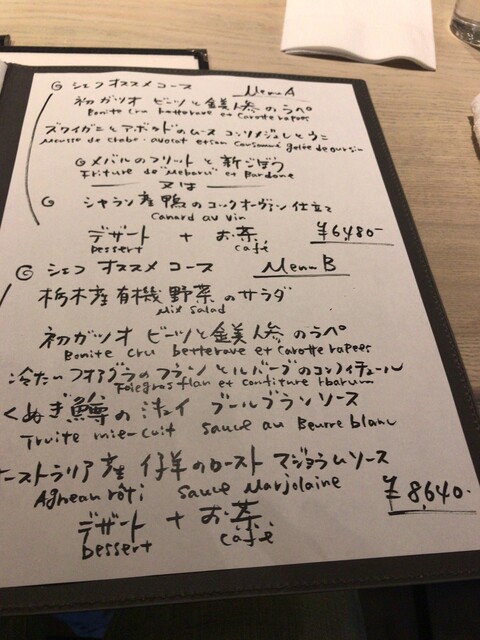 シェフ オススメ コース Menu A
初ガツオ ビーツと金美人参のラペ
Bonite cru betterave et Carotte rapees
ズワイガニとアボカドのムース コンソメジュレとうに
Mousse de crabe avocat et son consommé gelée de oursin
メバルのフリットと新ごぼう
Friture de "Mebaru" et Bardane
又は
シャラン産鴨のコックオーヴァン仕立て
Canard au vin
デザート + お茶 ¥6,480-
Dessert café
シェフ オススメ コース Menu B
栃木産有機野菜のサラダ
Mix salad
初ガツオ ビーツと金美人参のラペ
Bonite cru betterave et Carotte rapees
冷たいフォアグラのフランとルバーブのコンフィチュール
Foiegras flan et confiture rbarum
くぬぎ鱒のミキュイ ブールブランソース
Truite mie-cuit sauce au Beurre blanc
ーストラリア産 仔羊のロースト マジョラムソース
Agneau rôti sauce Marjolaine
デザート + お茶 ¥8,640-
Dessert café